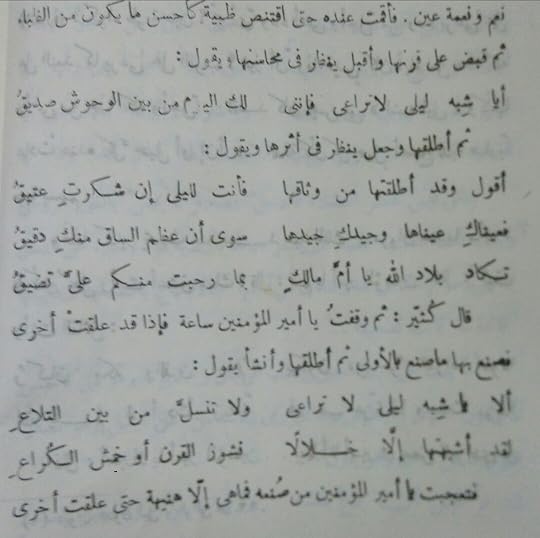 نعم ونعمة عين . فأقمت عنده حتى اقتنص ظبية كأحسن ما يكون من الظباء
ثم قبض على قرنها وأقبل ينظر فى محاسنها ويقول :
أيا شِبه ليلى لا تراعى فإننى لك اليوم من بين الوحوش صديقُ
ثم أطلقها وجعل ينظر فى أثرها ويقول :
أقول وقد أطلقتها من وثاقها فأنت لليلى إن شكرتِ عتيقُ
فعيناكِ عيناها وجيدكِ جيدها سوى أن عظم الساق منكِ دقيقُ
تكاد بلاد الله يا أمَّ مالكٍ بما رحبت منكم علىَّ تضيقُ
قال كُثيّر : ثم وقفتُ يا أمير المؤمنين ساعة فإذا قد علقتْ أخرى
فصنع بها ماصنع بالأولى ثم أطلقها وأنشأ يقول :
ألا يا شِبه ليلى لا تراعى ولا تنسلَّ من بين التلاعِ
لقد أشبهتها إلّا خلالًا نشوز القرن أو خمش الكُراعِ
فتعجبت يا أمير المؤمنين من صُنعه فماهى إلّا هنيهة حتى علقت أخرى